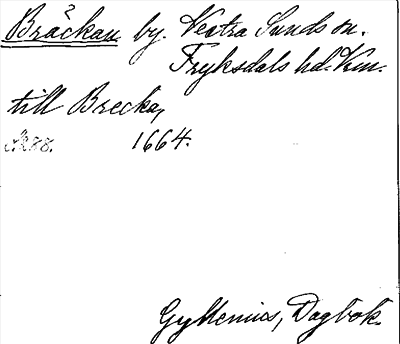 Bräckan by. Vestra Sunds sn.
Fryksdals hd. Vrm.
till Brecka,
s. 288. 1664.
Gyllenius, Dagbok.